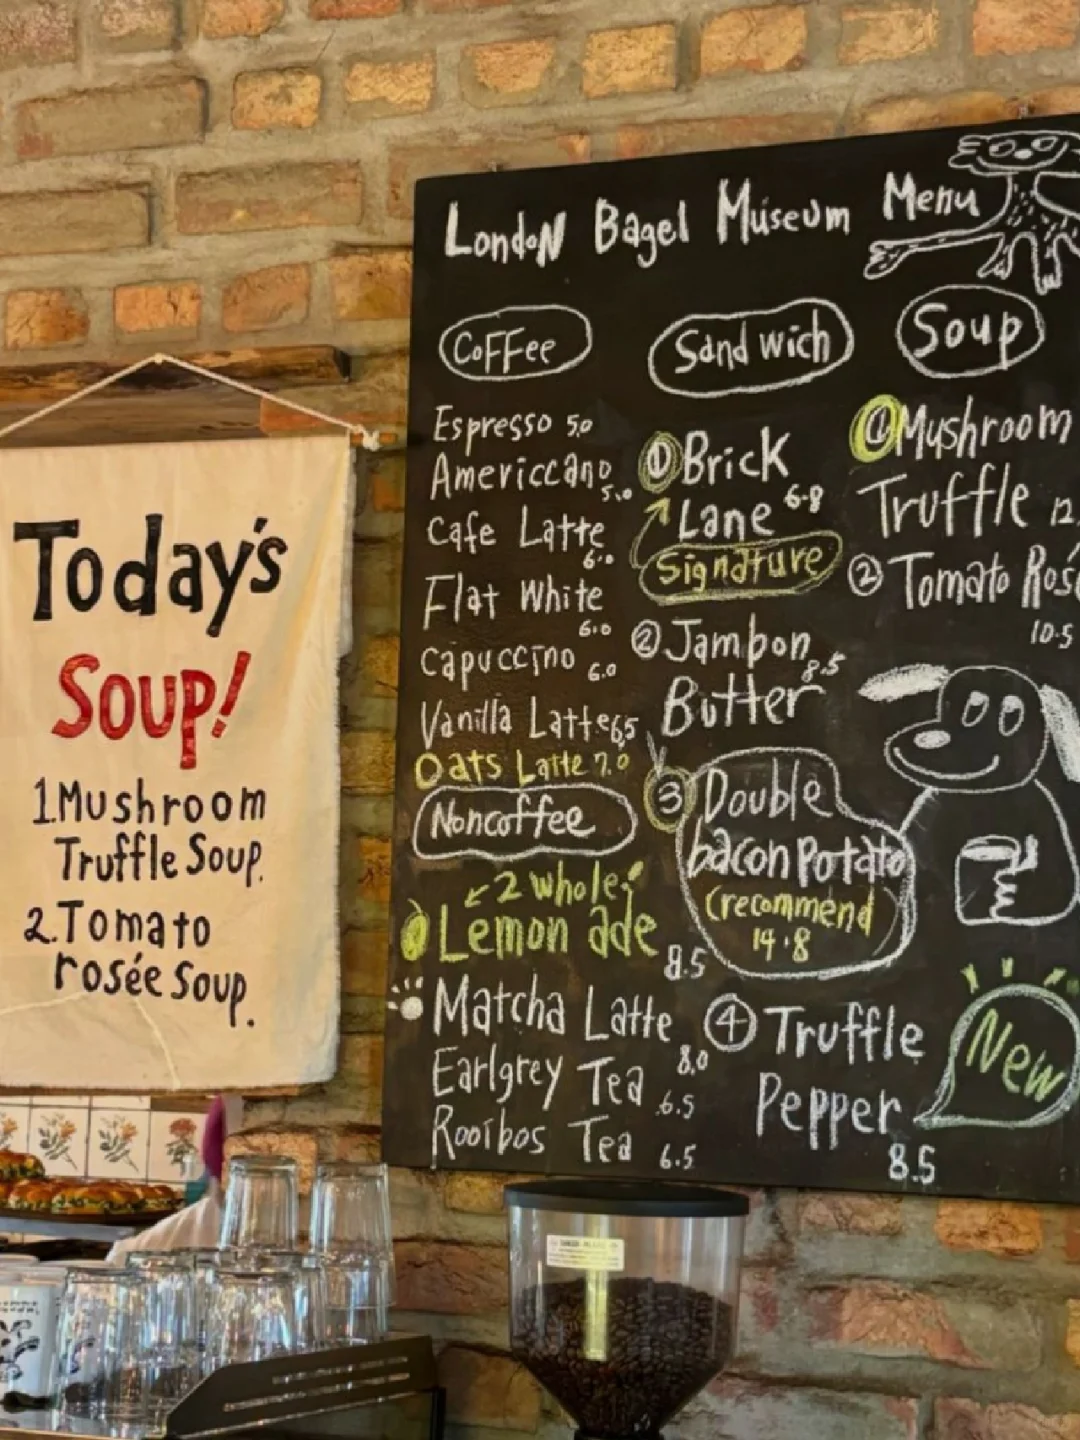 Today's
Soup!
1.Mushroom
Truffle Soup.
2.Tomato
rosée soup.
London Bagel Museum Menu
Coffee
Espresso 5.0
Americcano 5.0
Cafe Latte 6.0
Flat White 6.0
Capuccino 6.0
Vanilla Latte 6.5
Oats Latte 7.0
Noncoffee
2 whole
Lemon ade 8.5
Matcha Latte 8.0
Earlgrey Tea 6.5
Rooibos Tea 6.5
Sandwich
① Brick
Lane 6.8
Signature
② Jambon 8.5
Butter
③ Double
bacon Potato
(recommend
14.8
④ Truffle
Pepper
8.5
New
Soup
① Mushroom
Truffle 12.
② Tomato Rosé
10.5